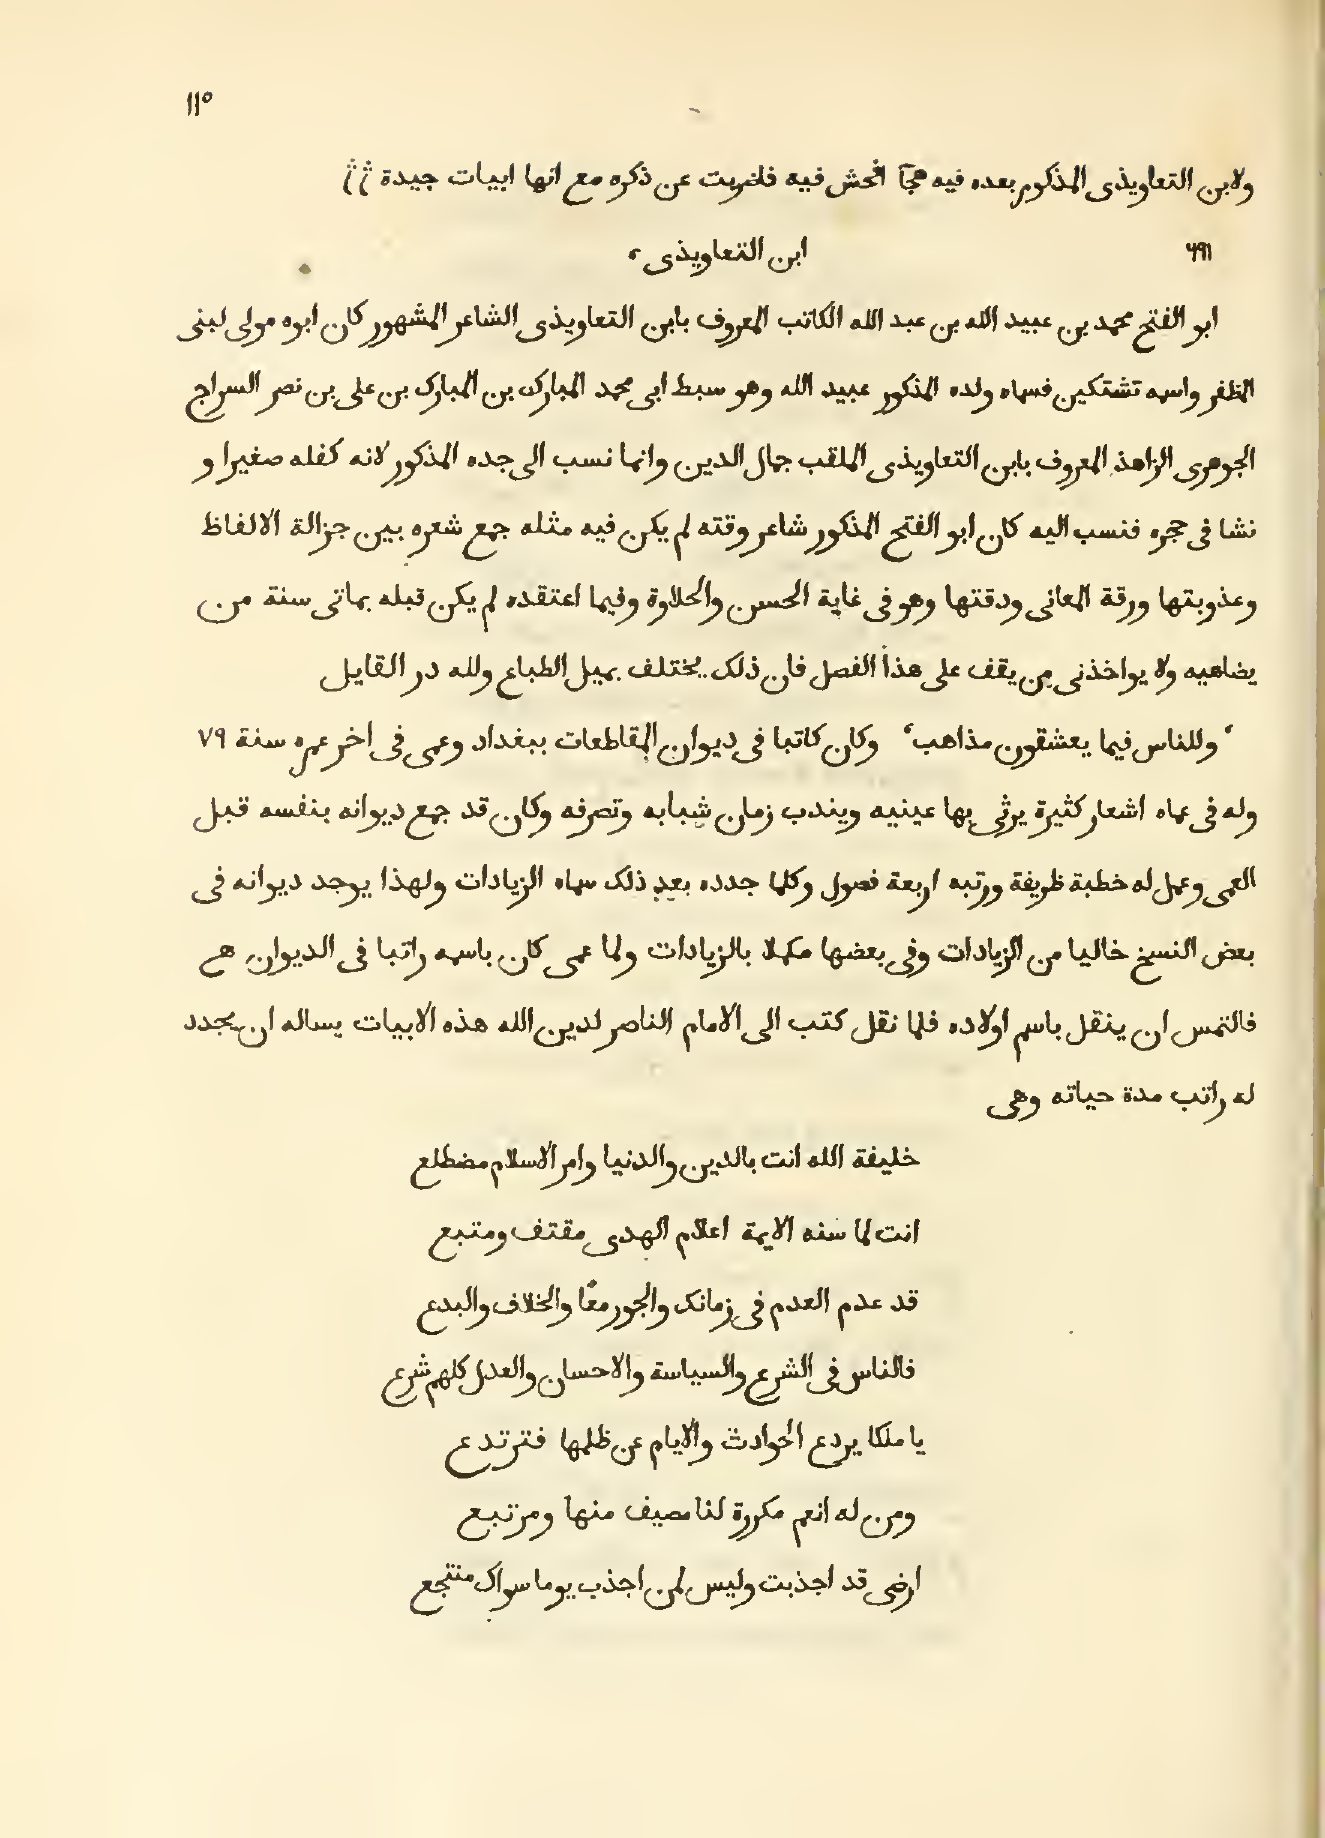 ١١٥
ولابن التعاويذى المذكور بعده فيه هجآ افحش فيه فاضربت عن ذكره مع انها ابيات جيدة
٦٩١ ابن التعاويذى
ابو الفتح محمد بن عبيد الله بن عبد الله الكاتب المعروف بابن التعاويذى الشاعر المشهور كان ابوه مولى لبنى
المظفر واسمه تشتكين فسماه ولده المذكور عبيد الله وهو سبط ابى محمد المبارك بن المبارك بن على بن نصر السراج
الجوهرى الزاهد المعروف بابن التعاويذى الملقب جمال الدين وانما نسب الى جده المذكور لانه كفله صغيرا و
نشا فى حجره فنسب اليه كان ابو الفتح المذكور شاعر وقته لم يكن فيه مثله جمع شعره بين جزالة الالفاظ
وعذوبتها ورقة المعانى ودقتها وهو فى غاية الحسن والحلاوة وفيما اعتقده لم يكن قبله بماتى سنة من
يضاهيه ولا يواخذنى من يقف على هذا الفصل فان ذلك يختلف بميل الطباع ولله در القايل
‘ وللناس فيما يعشقون مذاهب ‘ وكان كاتبا فى ديوان المقاطعات ببغداد وعمى فى اخر عمره سنة ٧٩
وله فى عماه اشعار كثيرة يرثى بها عينيه ويندب زمان شبابه وتصرفه وكان قد جمع ديوانه بنفسه قبل
العمى وعمل له خطبة ظريفة ورتبه اربعة فصول وكلما جدده بعد ذلك سماه الزيادات ولهذا يوجد ديوانه فى
بعض النسخ خاليا من الزيادات وفى بعضها مكملا بالزيادات ولما عمى كان باسمه راتبا فى الديوان
فالتمس ان ينقل باسم اولاده فلما نقل كتب الى الامام الناصر لدين الله هذه الابيات يساله ان يجدد
له راتب مدة حياته وهى
خليفة الله انت بالدين والدنيا وامر الاسلام مضطلع
انت لما سنه الايمة اعلام الهدى مقتف ومتبع
قد عدم العدم فى زمانك والجور معًا والخلاف والبدع
فالناس فى الشرع والسياسة والاحسان والعدل كلهم شرع
يا ملكا يردع الحوادث والايام عن ظلمها فترتدع
ومن له انعم مكررة لنا مصيف منها ومرتبع
ارضى قد اجذبت وليس لمن اجذب يوما سواك منتجع